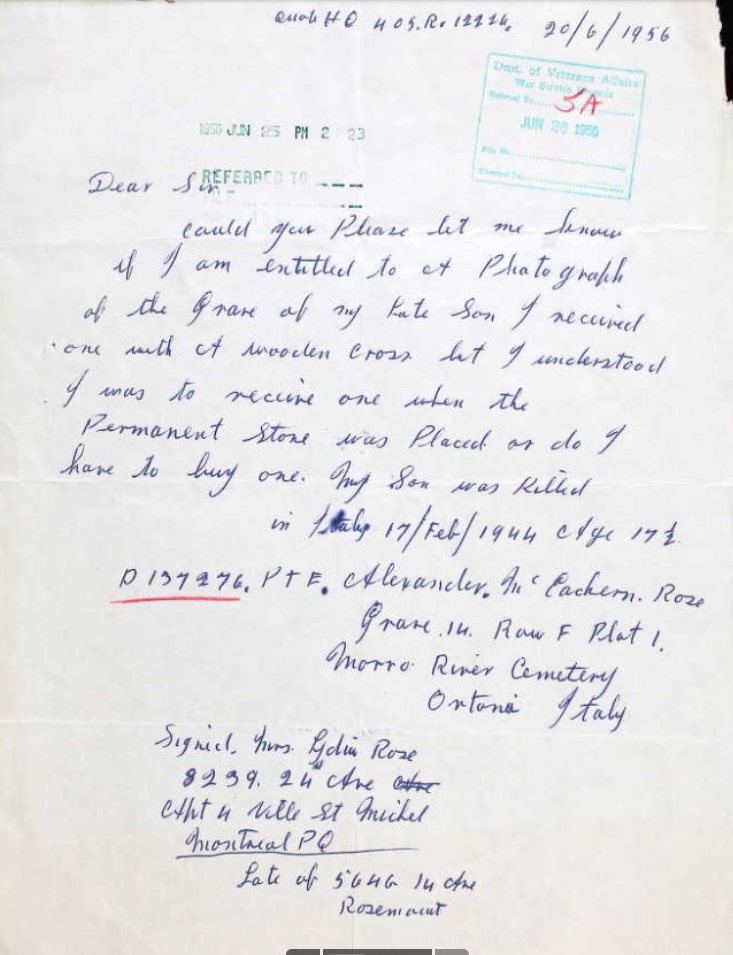 Quote HQ 405.R.12226. 20/6/1956
Dept. of Veterans Affairs
War Service Records
Referred To.....SA
JUN 26 1956
File No.
Charged To
1956 JUN 25 PM 2 23
REFERRED TO
Dear Sir.
could you Please let me know
if I am entitled to A Photograph
of the Grave of my Late Son I received
one with A wooden Cross but I understood
I was to receive one when the
Permanent Stone was Placed or do I
have to buy one. My Son was Killed
in Italy 17/Feb/1944 Age 17½.
D 137276. PTE. Alexander. Mc Eachern. Rose
Grave. 14. Row F Plot 1.
Morro River Cemetery
Ortona Italy
Signed. Mrs. Lydia Rose
8239. 24 Ave
Apt 4 Ville St Michel
Montreal PQ
Late of 5646 14 Ave
Rosemount